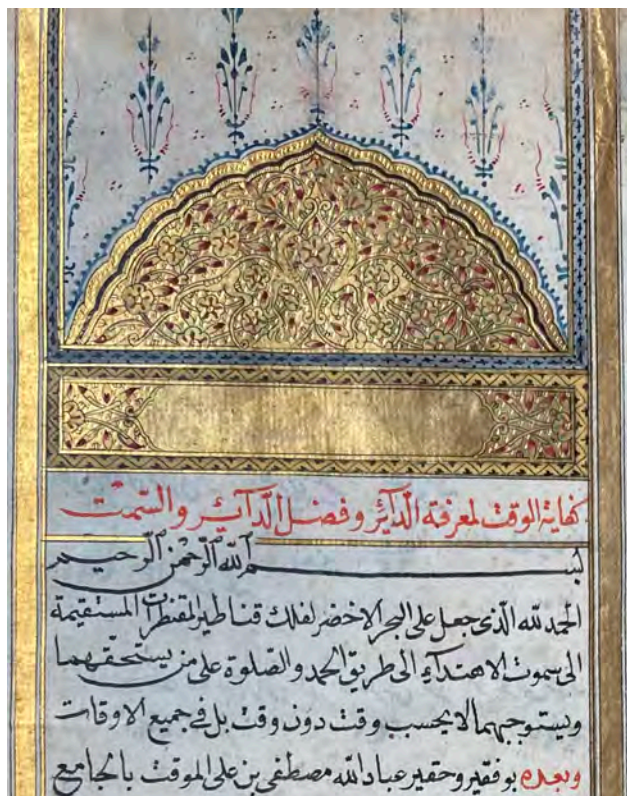 كفاية الوقت لمعرفة الدآئر و فضل الدآئر و السمت
بسم الله الرحمن الرحيم
الحمد لله الذى جعل على البحر الاخضر لفلك قناطير المقنطرات المستقيمة
الى سموت الاهتدآء الى طريق الحمد و الصلوة على من يستحقهما
ويستوجبهما لا يحسب وقت دون وقت بل فى جميع الاوقات
وبعده بو فقير و حقير عباد الله مصطفى بن على الموقت بالجامع